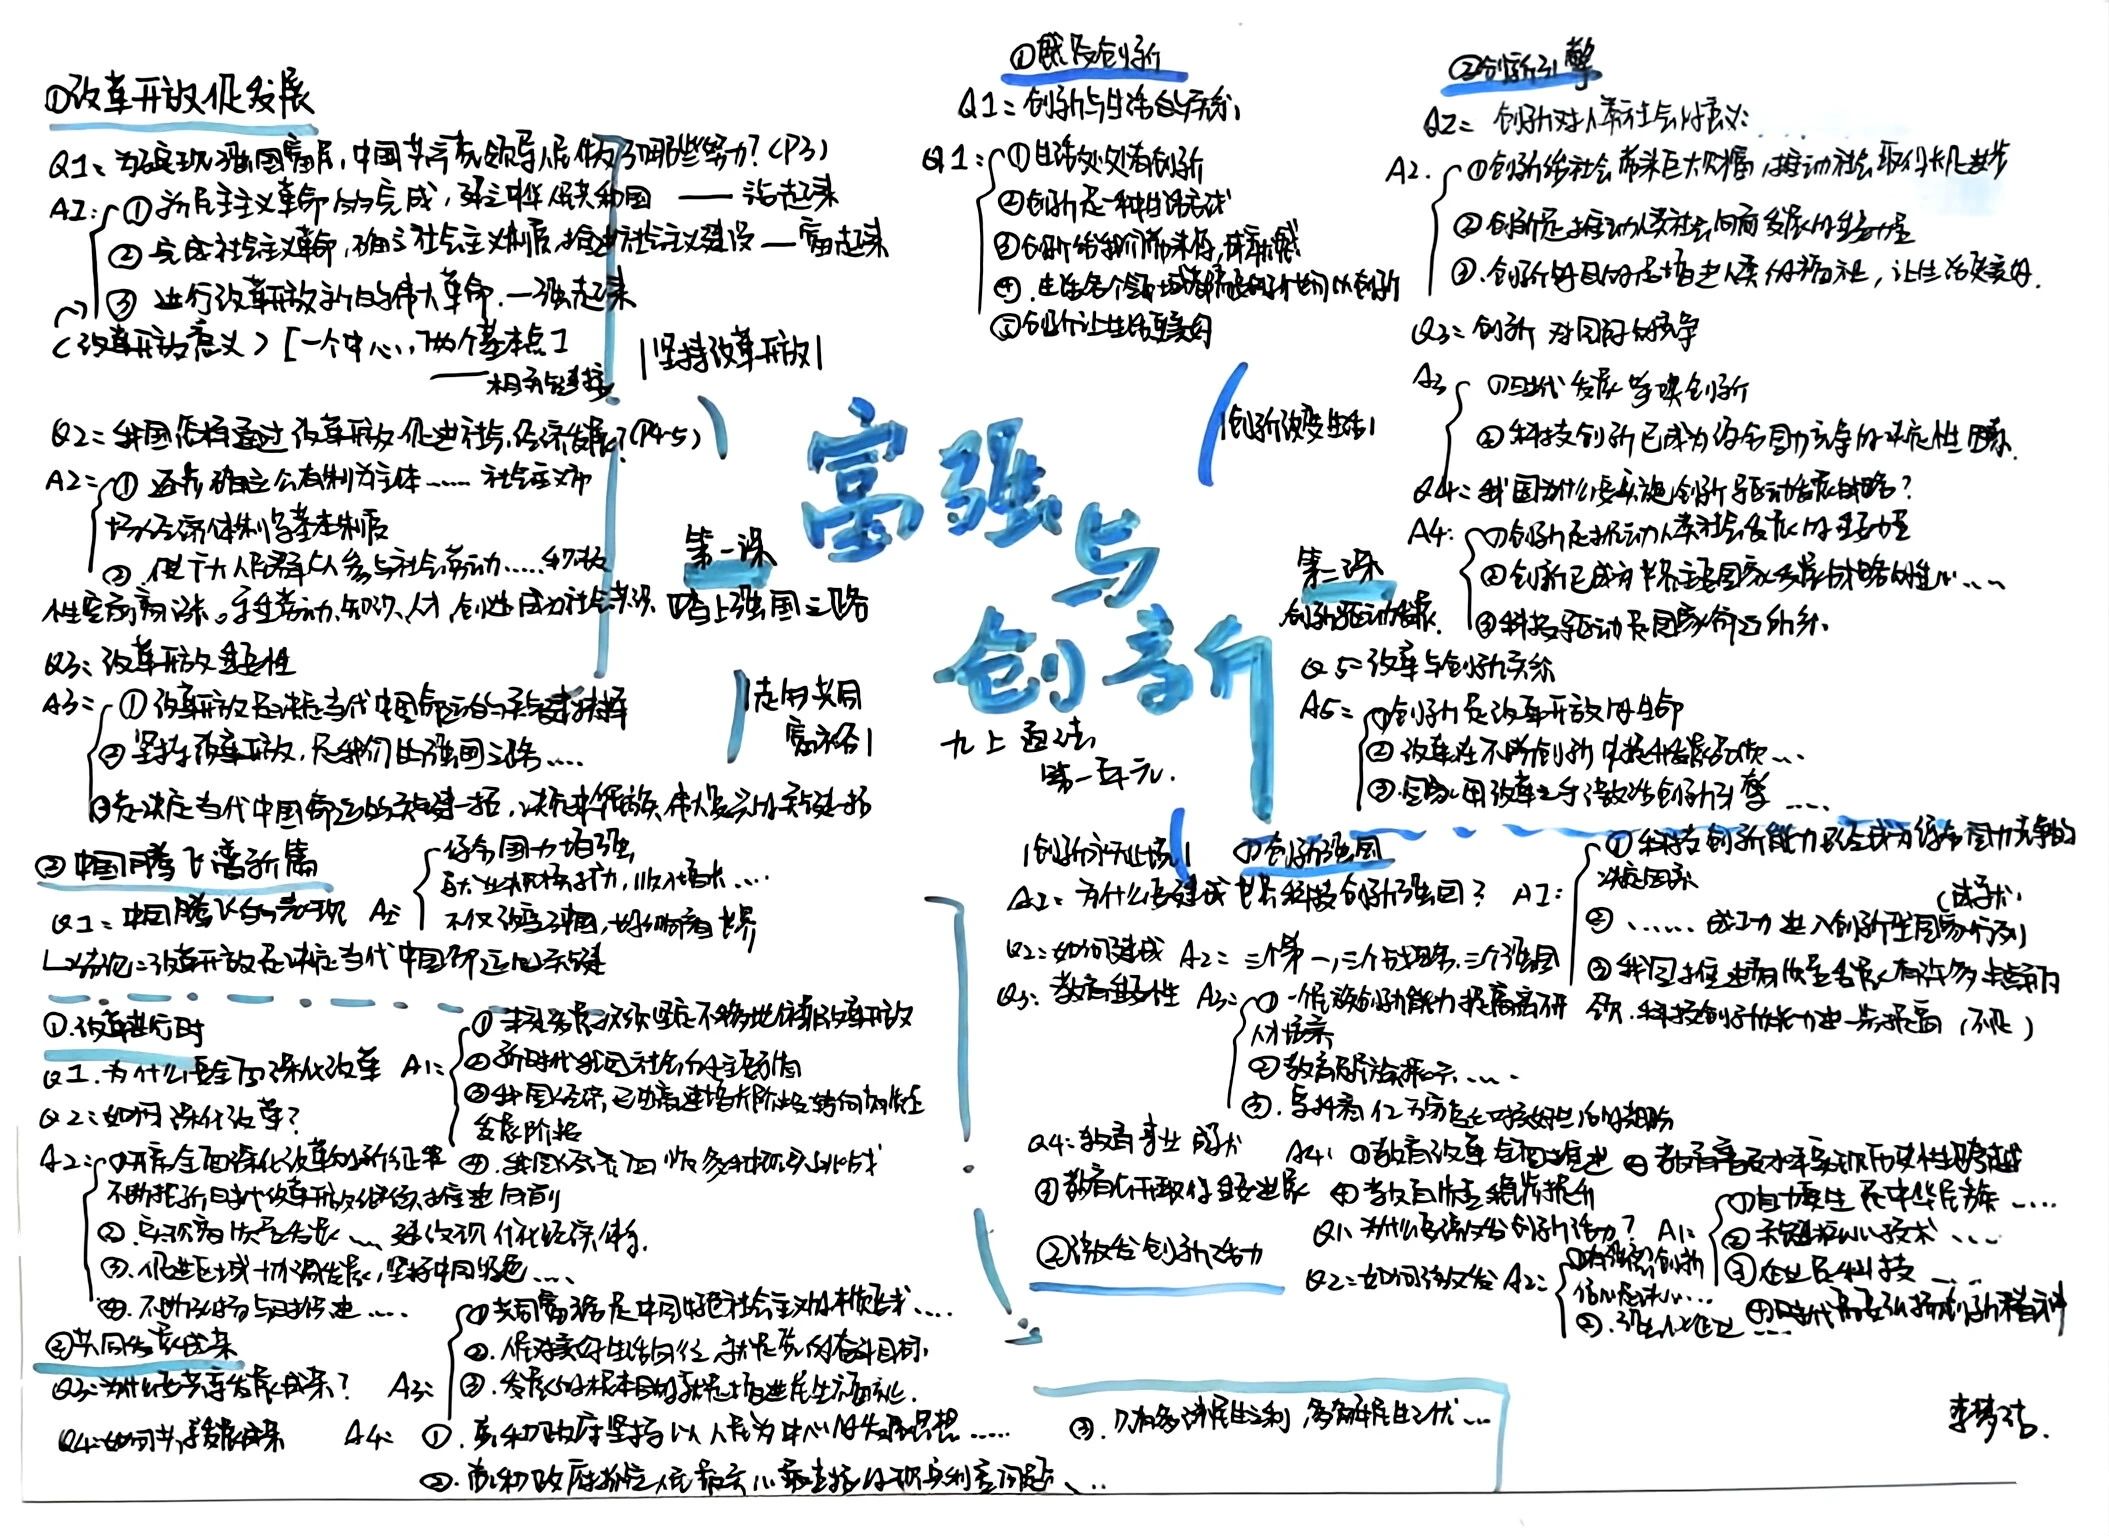 ①改革开放促发展
Q1: 为了实现强国富民，中国共产党领导人民做了哪些努力？（P3）
A1: ①新民主主义革命的完成，建立中华人民共和国 —— 站起来
②完成社会主义革命，确立社会主义制度，推进社会主义建设 — 富起来
③进行改革开放新的伟大革命 — 强起来
（改革开放意义）[一个中心，两个基本点]
——相关链接
|坚持改革开放|
Q2: 我国怎样通过改革开放促进社会经济发展？(P4-5)
A2: ①逐步确立公有制为主体…… 社会主义市
场经济体制等基本制度
②使广大人民群众参与社会劳动……积极
性空前高涨。尊重劳动、知识、人才、创造成为社会共识
Q3: 改革开放重要性
A3: ①改革开放是决定当代中国命运的关键抉择
②坚持改革开放，是我们的强国之路……
③是决定当代中国命运的关键一招，决定中华民族伟大复兴的关键一招
第一课
踏上强国之路
|走向共同
富裕|
富强与
创新
九上 道法
第一单元.
②中国腾飞谱新篇
Q1: 中国腾飞的表现 A1:
综合国力增强
就业积极活力，收入增长……
不仅改变中国，也影响着世界
↳结论: 改革开放是决定当代中国命运的关键
①改革进行时
Q1. 为什么要全面深化改革 A1:
②新时代我国社会的主要矛盾
③我国经济已由高速增长阶段转向高质量
发展阶段
Q2: 如何深化改革?
A2: ①开启全面深化改革的新征程
不断把新时代改革开放继续推进向前
②实现高质量发展……建设现代化经济体系.
③促进区域协调发展，坚持中国特色……
④不断弘扬与时俱进……
②共同发展成果
Q3: 为什么要共享发展成果? A3:
①共同富裕是中国特色社会主义的本质要求……
②人民对美好生活的向往，就是我们的奋斗目标.
③发展的根本目的就是增进民生福祉.
Q4: 如何共享发展成果 A4:
①党和政府坚持以人民为中心的发展思想……
②党和政府抓住人民最关心最直接的现实利益问题……
③为人民多谋民生之利，多解民生之忧……
①感受创新
Q1: 创新与生活的关系
Q1: ①生活处处有创新
②创新是一种生活方式
④生活各个领域
⑤创新让生活更美好
|创新改变生活|
②创新引擎
Q2: 创新对人类社会的意义:
A2. ①创新给社会带来巨大财富，推动社会取得长足进步
②创新是推动人类社会向前发展的重要力量
③创新的目的是增进人类的福祉，让生活更美好.
Q3: 创新对国际的竞争
A3 ①时代发展呼唤创新
②科技创新已成为综合国力竞争的决定性因素.
Q4: 我国为什么要实施创新驱动发展战略?
A4: ①创新是推动人类社会发展的重要力量
②创新已成为世界主要国家发展战略的核心……
③科技驱动是国家命运所系.
第二课
创新驱动发展.
Q5: 改革与创新关系
A5: ①创新是改革开放的生命
②改革在不断创新中提升发展品质……
③国家用改革之手激活创新引擎……
|创新永无止境|
①创新强国
Q1: 为什么要建成世界科技创新强国? A1:
①科技创新能力已经成为综合国力竞争的
决定因素
②……成功进入创新型国家行列
（成就）
③我国推进高质量发展有许多卡点瓶
颈. 科技创新能力进一步提高（不足）
Q2: 如何建成 A2: 三个第一，三个战略，三个强国
Q3: 教育重要性 A3: ①一个民族创新能力提高离不开
人才培养
②教育是
③
Q4: 教育事业成就 A4: ①教育改革全面推进 ②教育普及水平实现历史性跨越
③教育公平取得重要进展 ④教育质量稳步提升
②激发创新活力
Q1: 为什么要激发创新活力? A1:
①自力更生是中华民族……
②关键核心技术……
③企业是科技……
④时代需要弘扬创新精神
Q2: 如何激发 A2:
李梦洁.